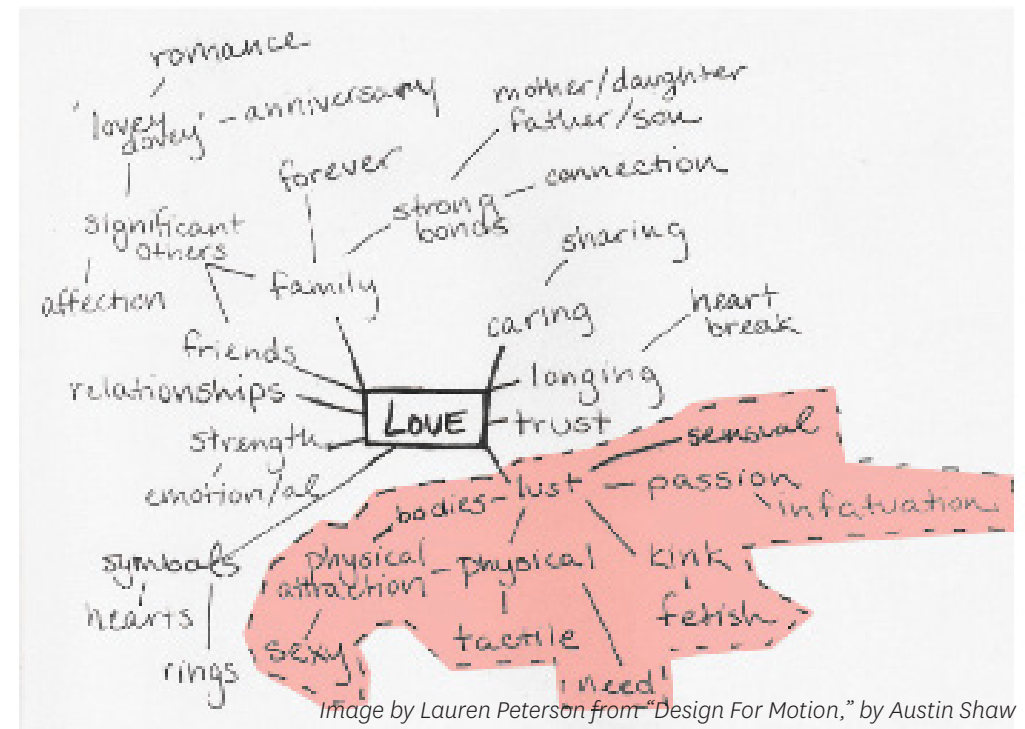 romance
'lovey dovey' - anniversary
mother/daughter
father/son
forever
connection
strong
bonds
significant
others
sharing
family
affection
caring
heart
break
friends
longing
relationships
LOVE
trust
strength
sensual
emotion/al
bodies - lust - passion
infatuation
symbols
physical
attraction - physical
kink
hearts
fetish
tactile
sexy
rings
need
Image by Lauren Peterson from “Design For Motion,” by Austin Shaw